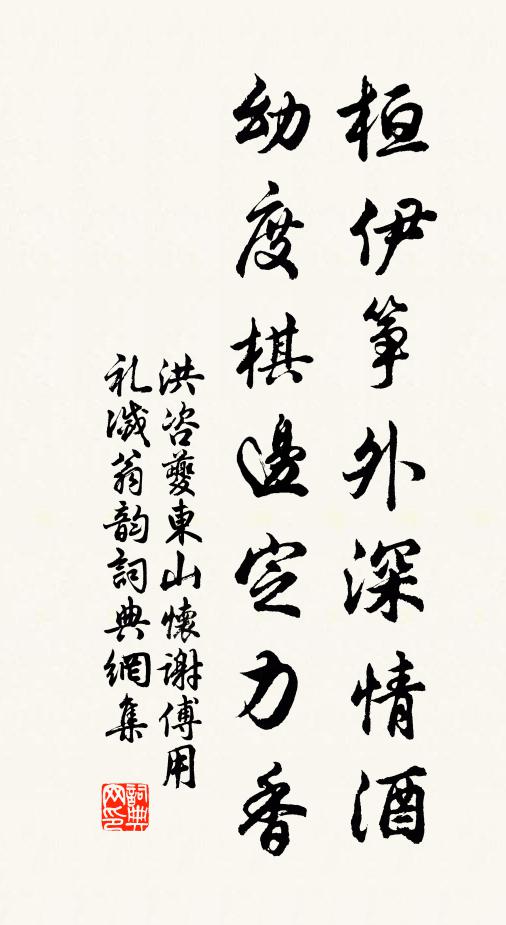 桓伊箏外深情酒
幼度棋邊定力香
洪咨夔東山懷謝傅用
礼澸翁韵詞典網集
詞典网印